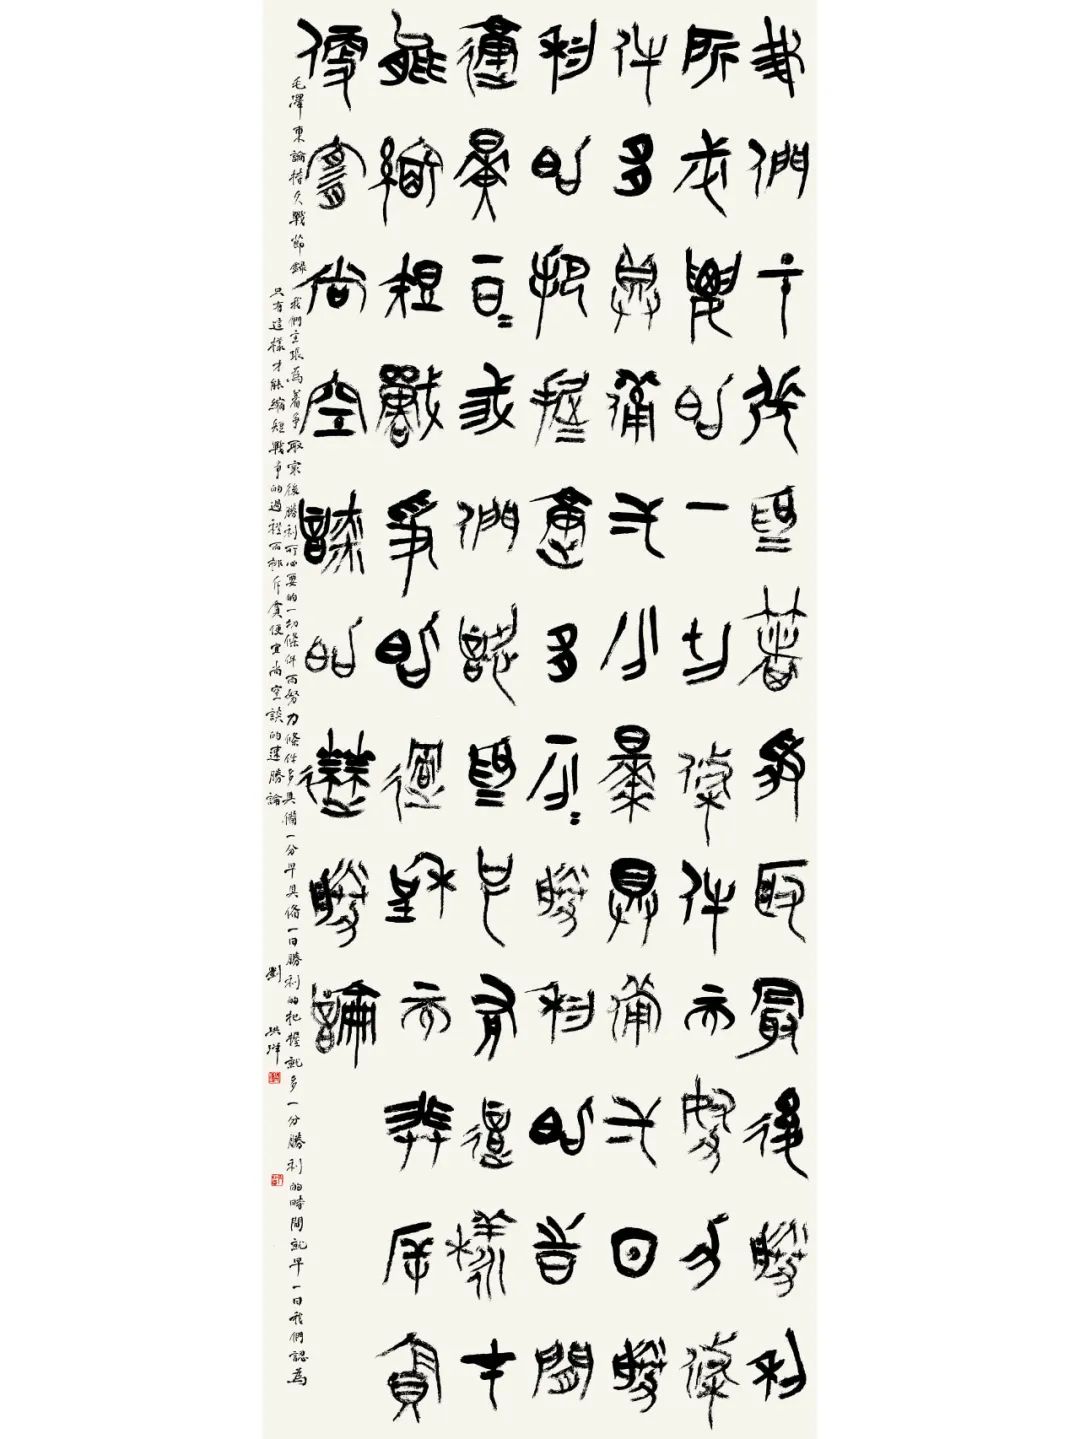 我們主張為著爭取最後勝利
所必要的一切條件而努力條
件多具備弌分早具備弌日勝
利的把握就多一分勝利的時間
就早一日我們認為只有這樣才
能縮短戰爭的過程而排斥貪
便宜尚空談的速勝論
毛澤東論持久戰節錄 我們主張為著爭取最後勝利所必要的一切條件而努力條件多具備一分早具備一日勝利的把握就多一分勝利的時間就早一日我們認為
只有這樣才能縮短戰爭的過程而排斥貪便宜尚空談的速勝論 劉洪洋